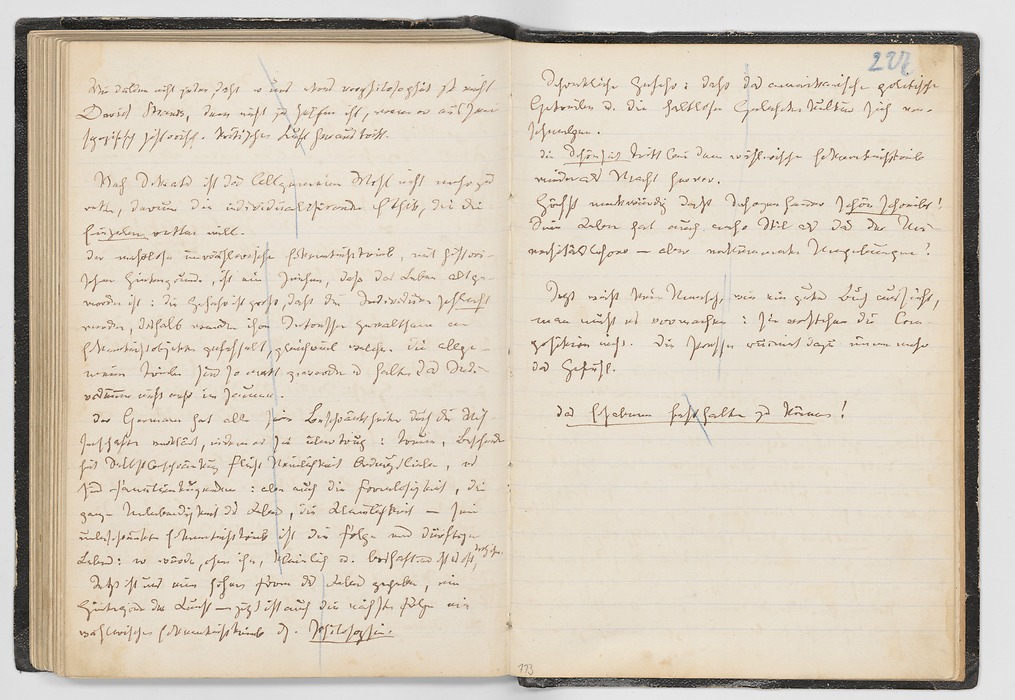 Wir dulden nicht jeden, daß er uns etwas vorphilosophirt zB nicht
David Strauss, dem nicht zu helfen ist, wenn er aus seiner
spezifisch historisch-kritischen Luft heraustritt.
Nach Sokrates ist das allgemeine Wohl nicht mehr zu
retten, darum die individualisirende Ethik, die die
Einzelnen retten will.
Der maßlose unwählerische Erkenntnißtrieb, mit histori-
schem Hintergrunde, ist ein Zeichen, daß das Leben alt ge-
worden ist: die Gefahr ist groß, daß die Individuen schlecht
werden, deshalb werden ihre Interessen gewaltsam an
Erkenntnißobjekte gefesselt, gleichviel welche. Die allge-
meinen Triebe sind so matt geworden u halten das Indi-
viduum nicht mehr im Zaume.
Der Germane hat alle seine Beschränktheiten durch die Wis-
senschaften verklärt, indem er sie übertrug: Treue, Bescheiden-
heit Selbstbeschränkung Fleiß Reinlichkeit Ordnungsliebe, es
sind Familientugenden: aber auch die Formlosigkeit, die
ganze Unlebendigkeit des Lebens, die Kleinlichkeit — sein
unbeschränkter Erkenntnißtrieb ist die Folge eines dürftigen
Lebens: er würde, ohne ihn, kleinlich u. boshaft und ist es oft, trotz ihm.
Jetzt ist uns eine höhere Form des Lebens gegeben, ein
Hintergrund der Kunst — jetzt ist auch die nächste Folge ein
wählerischer Erkenntnißtrieb dh. Philosophie.
227
Schreckliche Gefahr: daß das amerikanisch-politische
Getreibe u. die haltlose Gelehrtenkultur sich ver-
schmelzen.
Die Schönheit tritt bei dem wählerischen Erkenntnißtrieb
wieder als Macht hervor.
Höchst merkwürdig daß Schopenhauer schön schreibt!
Sein Leben hat auch mehr Stil als das der Uni-
versitätslehrer — aber verkümmerte Umgebungen!
Jetzt weiß kein Mensch, wie ein gutes Buch aussieht,
man muß es vormachen: sie verstehen die Com-
position nicht. Die Presse ruinirt dazu immer mehr
das Gefühl.
Das Erhabene festhalten zu können!
113